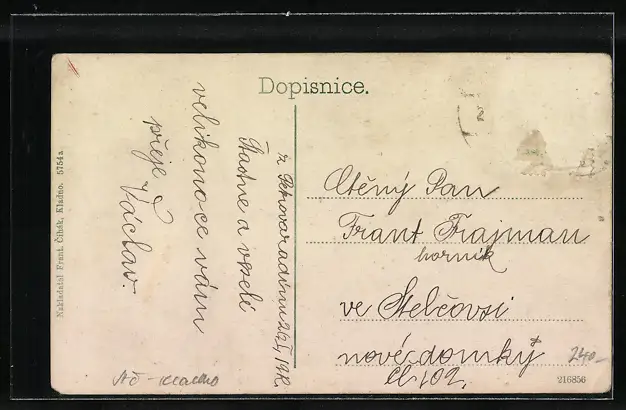 Dopisnice.
z Petrovaradinu
Šťastné a veselé
velikonoce vám
přeje
Václav.
Nakladatel Frant. Čihák, Kladno. 5754a
Ctěný Pan
Frant Frajman
horník
ve Stelčovsi
nové domky
čl 102.
240–
216856